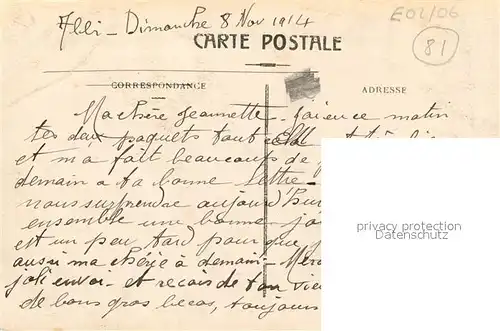 Albi - Dimanche 8 Nov 1914
E01/06
81
CARTE POSTALE
CORRESPONDANCE
ADRESSE
Ma chère Jeannette - J'ai ence matin
tes deux paquets tout
et m'a fait beaucoup de
demain a ta bonne lettre -
nous surprendre aujourd
ensemble une bonne
est un peu tard pour que
aussi ma chérie à demain - Merci
joli envoi - et recois de ton
de bons gros becos, toujours
privacy protection
Datenschutz